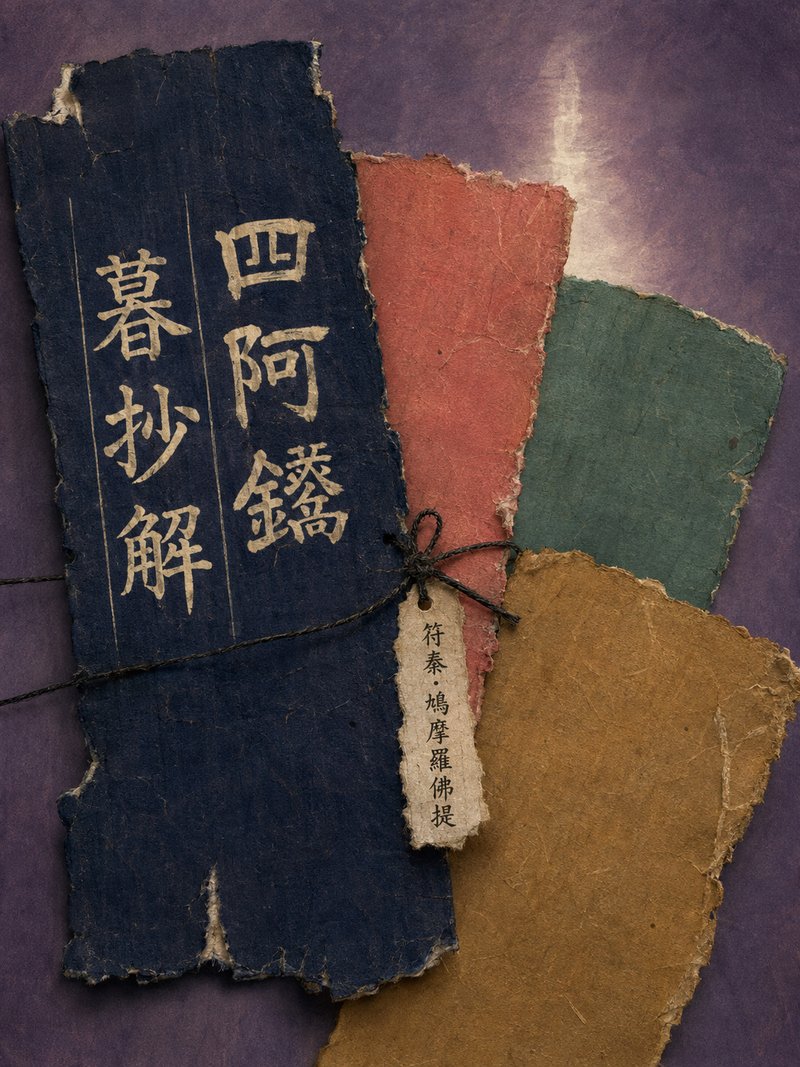 四阿
暮抄解
符秦·鳩摩羅佛提